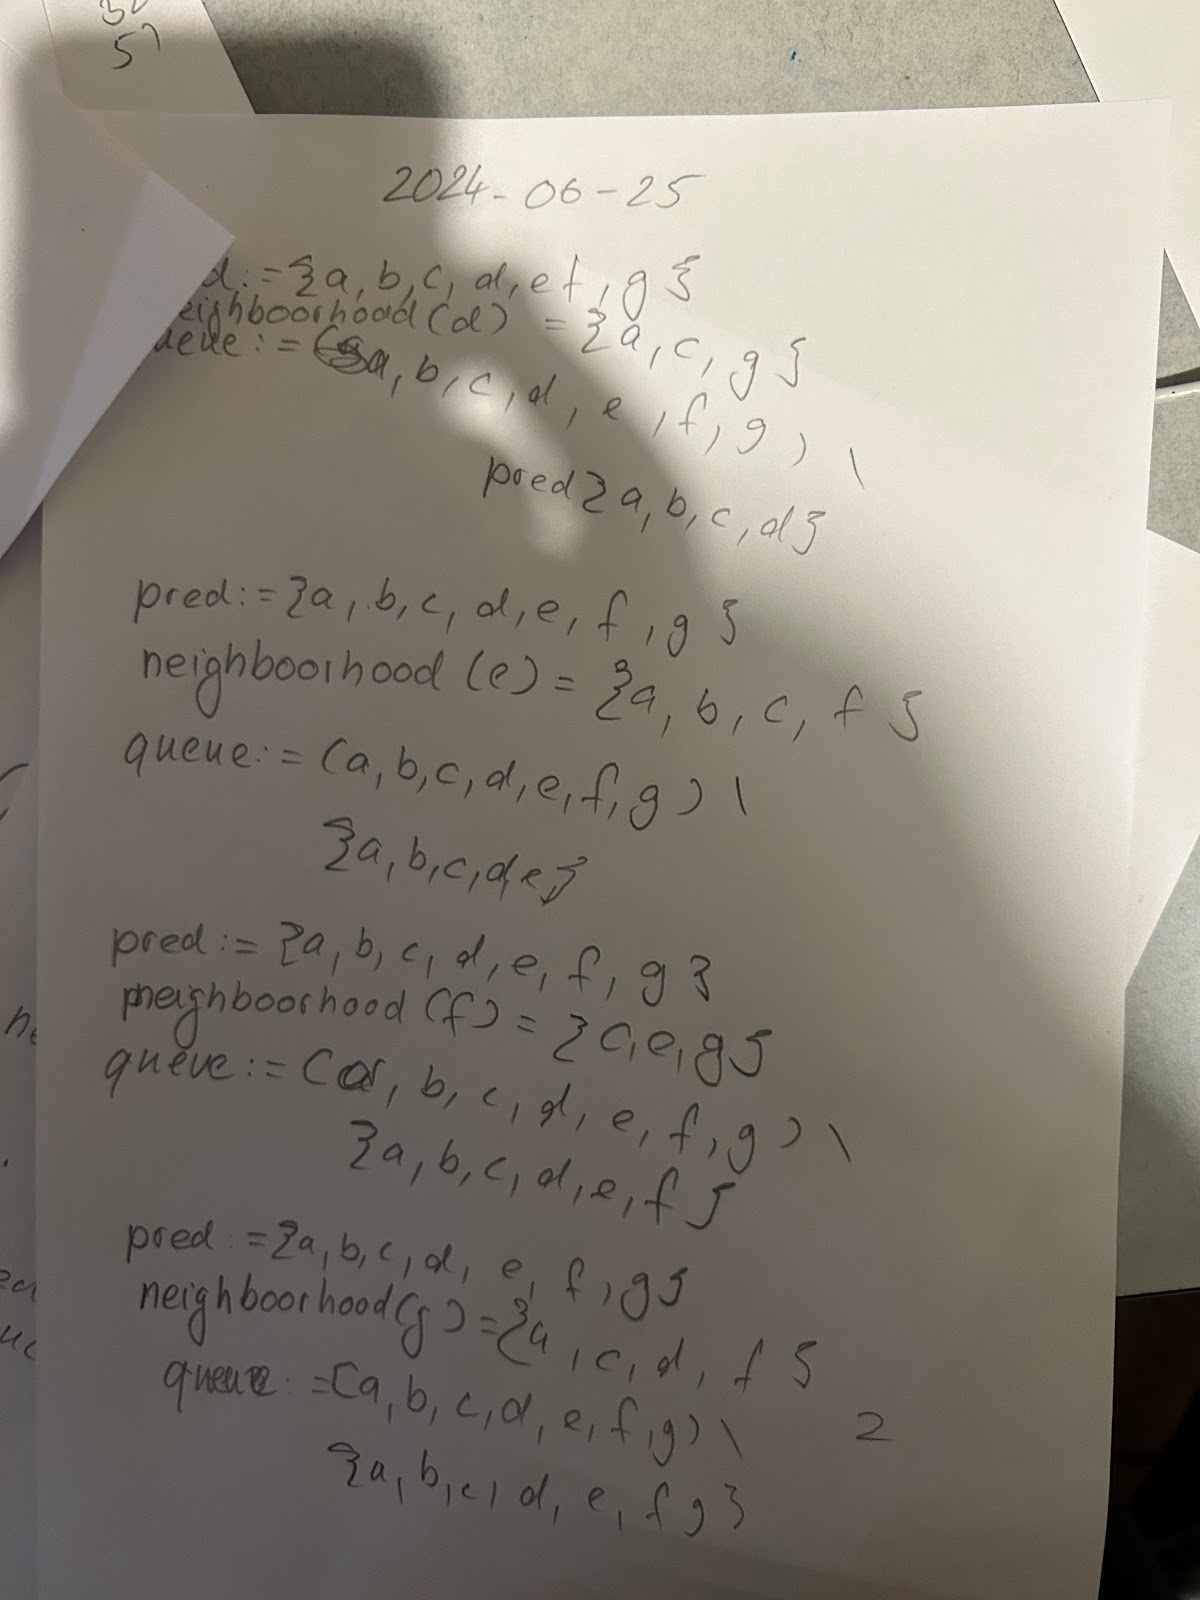 2024-06-25
d:={a, b, c, d, e f, g}
eighboorhood(d) = {a, c, g}
ueue:=(a, b, c, d, e, f, g) \
pred{a, b, c, d}
pred:={a, b, c, d, e, f, g}
neighboorhood(e)={a, b, c, f}
queue:=(a, b, c, d, e, f, g) \
{a, b, c, d e}
pred:={a, b, c, d, e, f, g}
neighboorhood(f)={c, e, g}
queue:=(a, b, c, d, e, f, g) \
{a, b, c, d, e, f}
pred:={a, b, c, d, e, f, g}
neighboorhood(g)={a, c, d, f}
queue:=(a, b, c, d, e, f, g) \
{a, b, c, d, e, f g}
2